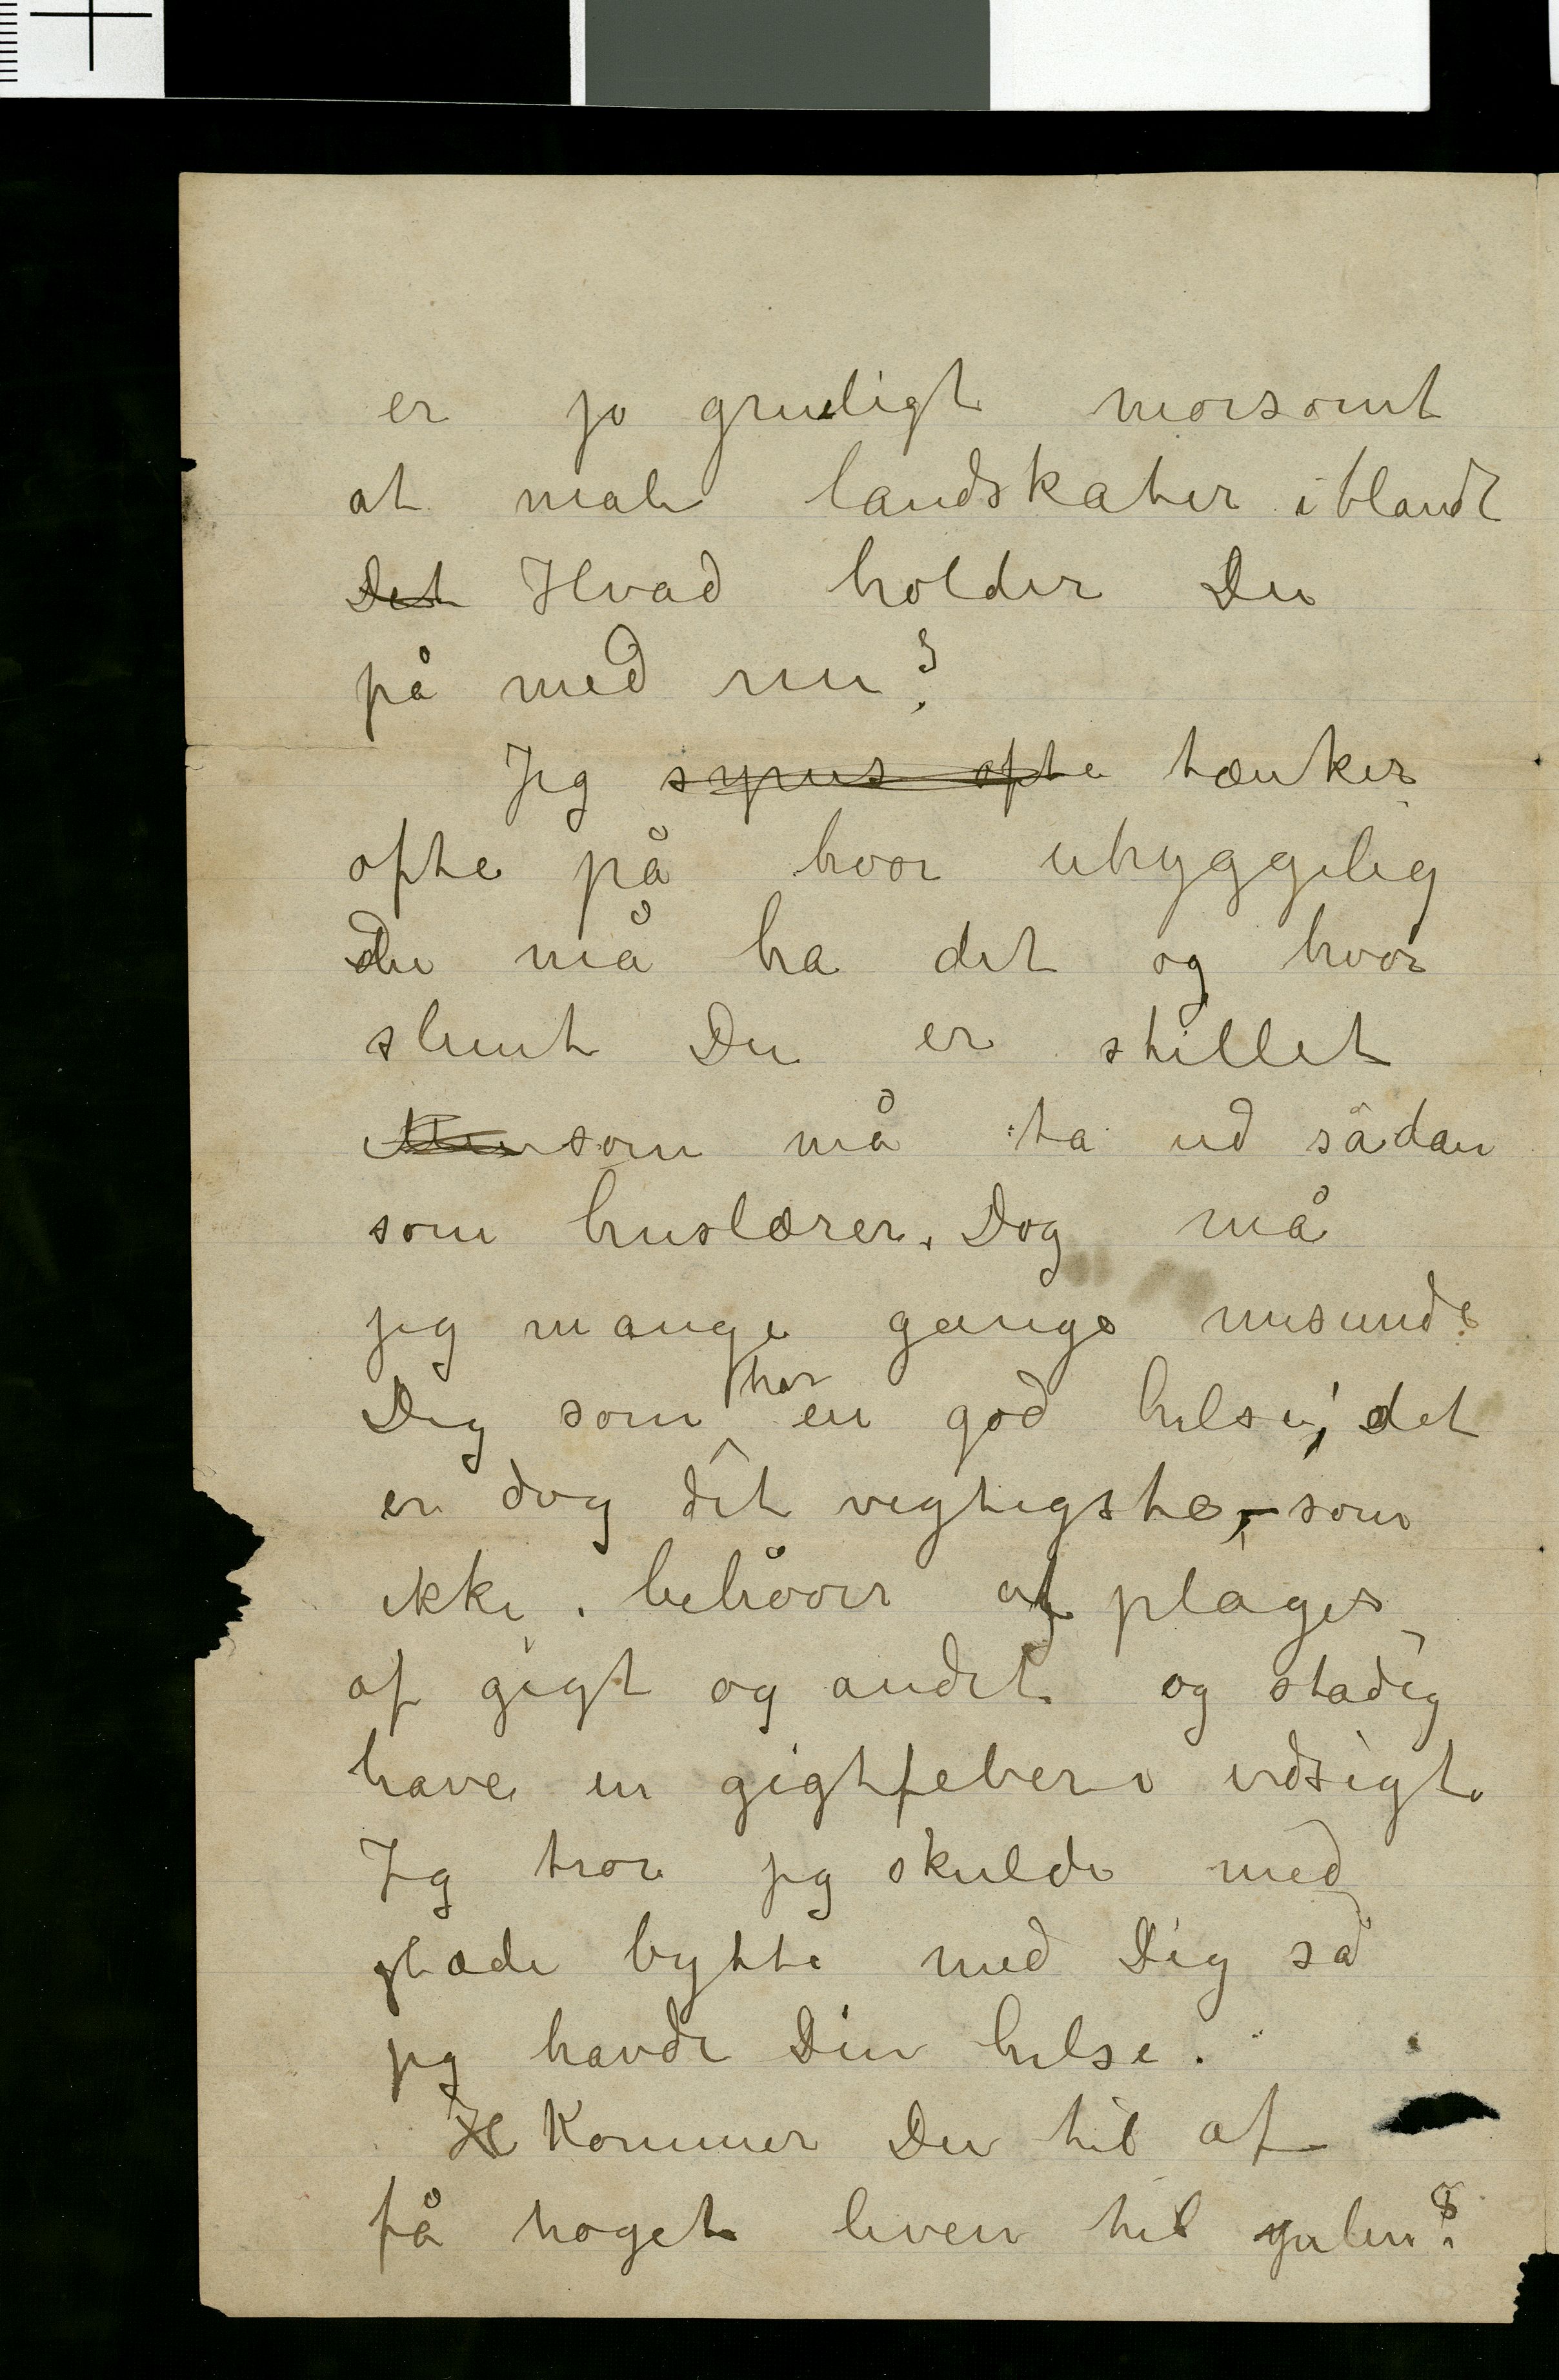 er jo grueligt morsomt
at male landskaber iblandt
Det Hvad holder Du
på med nu?
Jeg synes ofte tænker
ofte på hvor uhyggelig
Du må ha det og hvor
slemt Du er stillet
Men som må ta ud sådan
som huslærer. Dog må
jeg mange gange misunde
Dig som har en god helse; det
er dog det vigtigste, – som
ikke behøver at plages
af gigt og andet og stadig
have en gigtfeber i udsigt.
Jeg tror jeg skulde med
glæde bytte med Dig så
jeg havde Din helse.
H Kommer Du til at
få noget leven til julen?